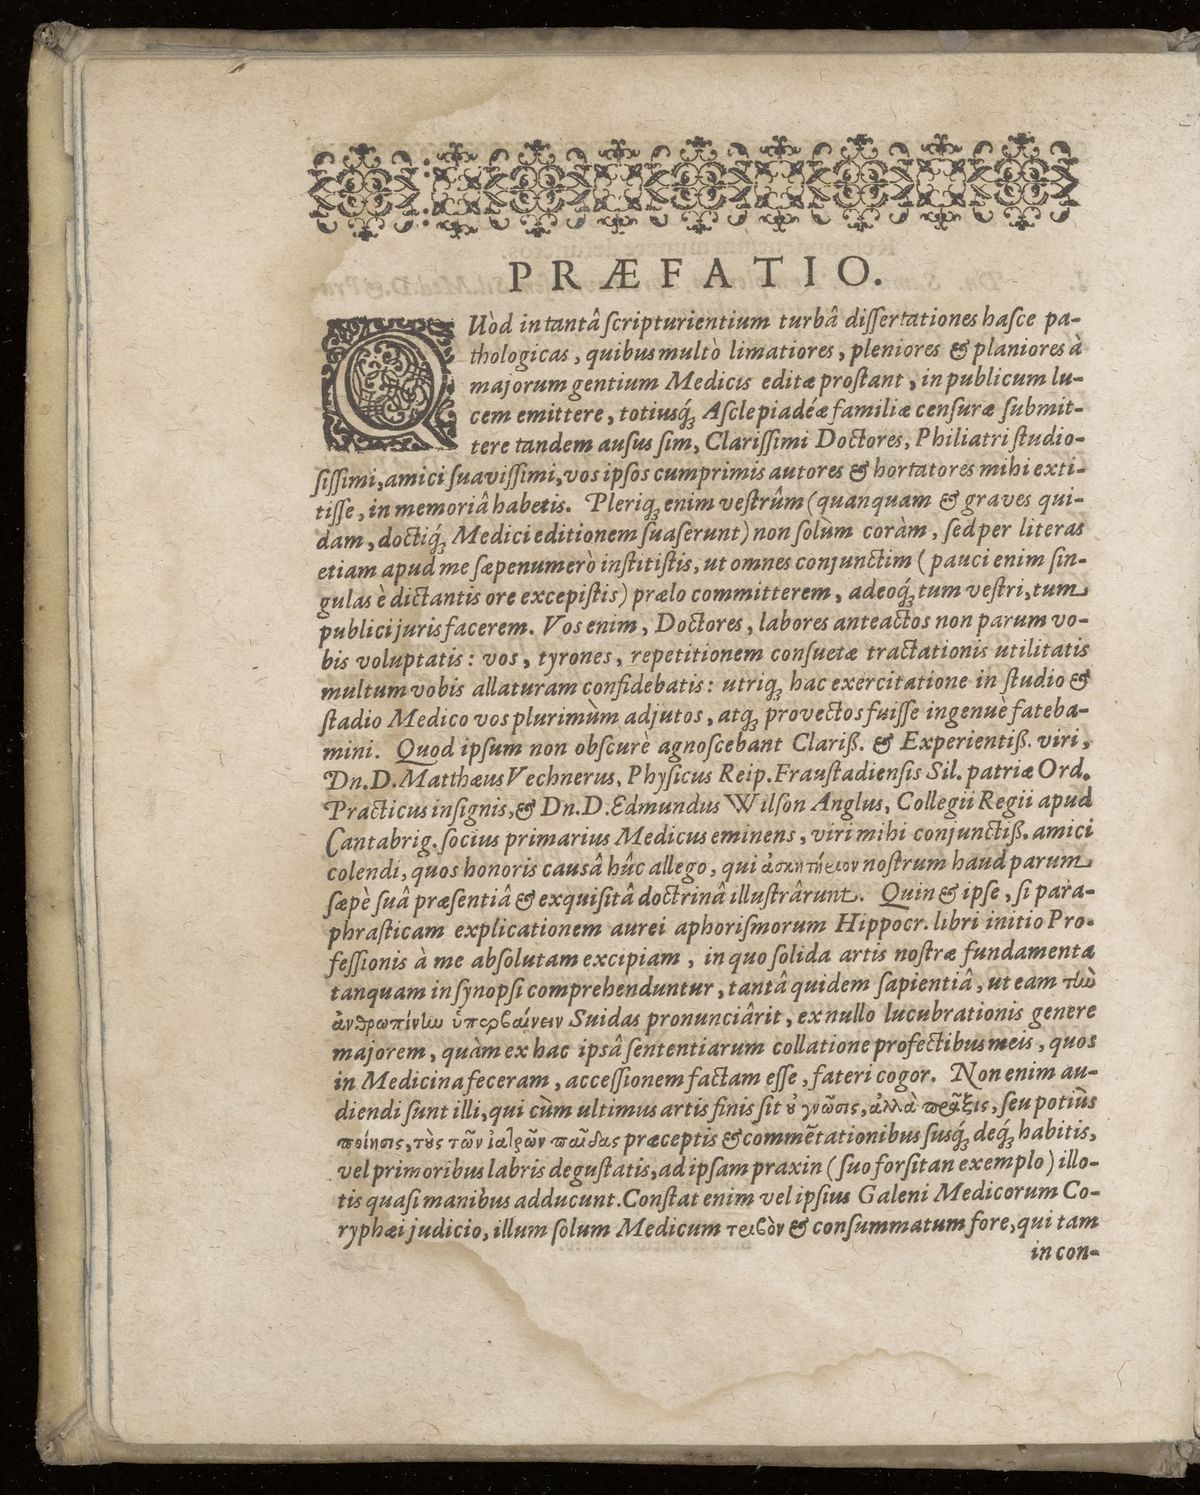 PRÆFATIO.
QUòd in tantâ ſcripturientium turbâ diſſertationes haſce pa-
thologicas, quibus multò limatiores, pleniores & planiores à
majorum gentium Medicis editæ proſtant, in publicum lu-
cem emittere, totiusq́; Aſclepiadéæ familiæ cenſuræ ſubmit-
tere tandem auſus ſim, Clariſſimi Doctores, Philiatri ſtudio-
ſiſſimi, amici ſuaviſſimi, vos ipſos cumprimis autores & hortatores mihi exti-
tiſſe, in memoriâ habetis. Pleriq; enim veſtrûm (quanquam & graves qui-
dam, doctiq́; Medici editionem ſuaſerunt) non ſolùm coràm, ſed per literas
etiam apud me ſæpenumerò inſtitiſtis, ut omnes conjunctim (pauci enim ſin-
gulas è dictantis ore excepiſtis) prælo committerem, adeoq́; tum veſtri, tum
publici juris facerem. Vos enim, Doctores, labores anteactos non parum vo-
bis voluptatis: vos, tyrones, repetitionem conſuetæ tractationis utilitatis
multum vobis allaturam confidebatis: utriq; hac exercitatione in ſtudio &
ſtadio Medico vos plurimùm adjutos, atq; provectos fuiſſe ingenuè fateba-
mini. Quod ipſum non obſcurè agnoſcebant Clariß. & Experientiß. viri,
Dn. D. Matthæus Vechnerus, Phyſicus Reip. Frauſtadienſis Sil. patriæ Ord.
Practicus inſignis, & Dn. D. Edmundus Wilſon Anglus, Collegii Regii apud
Cantabrig. ſocius primarius Medicus eminens, viri mihi conjunctiß. amici
colendi, quos honoris causâ hûc allego, qui ἀσκητήριον noſtrum haud parum
ſæpè ſuâ præſentiâ & exquiſitâ doctrinâ illuſtrârunt. Quin & ipſe, ſi para-
phraſticam explicationem aurei aphoriſmorum Hippocr. libri initio Pro-
feſſionis à me abſolutam excipiam, in quo ſolida artis noſtræ fundamenta
tanquam in ſynopſi comprehenduntur, tantâ quidem ſapientiâ, ut eam τὴν
ἀνθρωπίνην ὑπερβαίνειν Suidas pronunciârit, ex nullo lucubrationis genere
majorem, quàm ex hac ipsâ ſententiarum collatione profectibus meis, quos
in Medicina feceram, acceſſionem factam eſſe, fateri cogor. Non enim au-
diendi ſunt illi, qui cùm ultimus artis finis ſit οὐ γνῶσις, ἀλλὰ πρᾶξις, ſeu potiùs
ποίησις, τοὺς τῶν ἰατρῶν παῖδας præceptis & commẽtationibus ſusq́; deq́; habitis,
vel primoribus labris deguſtatis, ad ipſam praxin (ſuo forſitan exemplo) illo-
tis quaſi manibus adducunt. Conſtat enim vel ipſius Galeni Medicorum Co-
ryphæi judicio, illum ſolum Medicum τριβὸν & conſummatum fore, qui tam
in con-